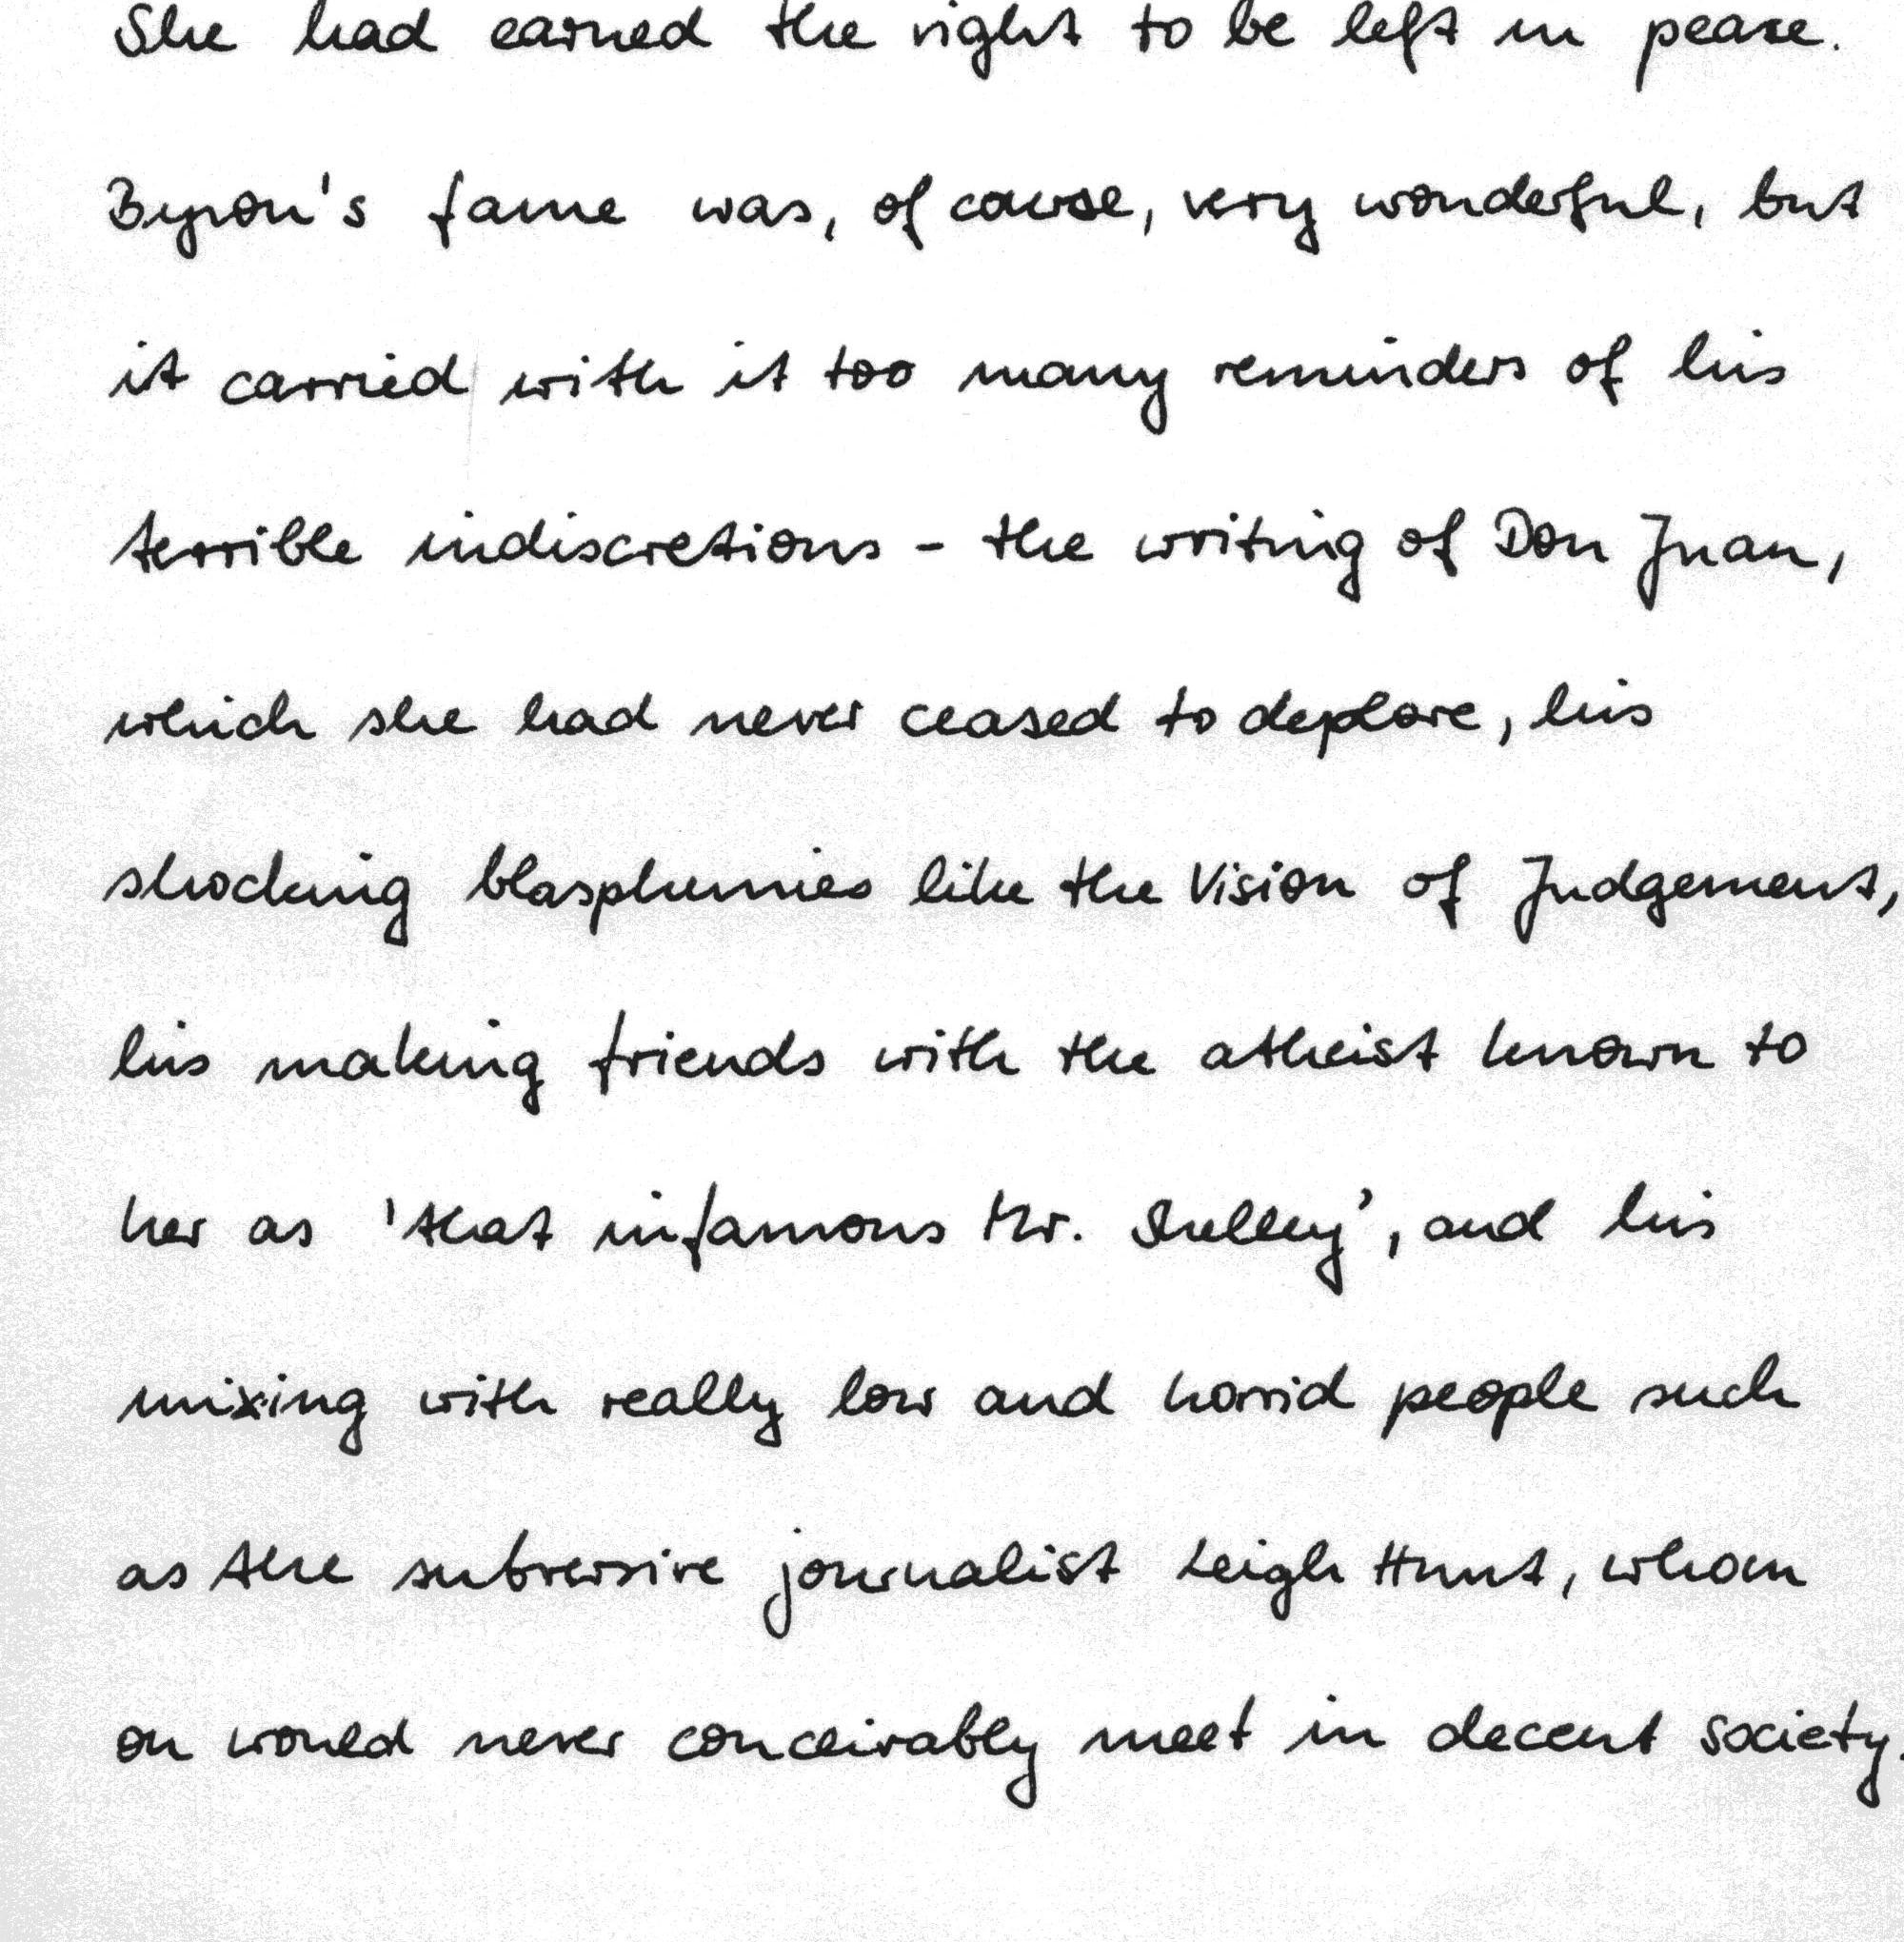 She had earned the right to be left in peace.
Byron's fame was, of course, very wonderful, but
it carried with it too many reminders of his
terrible indiscretions - the writing of Don Juan,
which she had never ceased to deplore, his
shocking blasphemies like the Vision of Judgement,
his making friends with the atheist known to
her as 'that infamous Mr. Shelley', and his
mixing with really low and horrid people such
as the subversive journalist Leigh Hunt, whom
on would never conceivably meet in decent society.